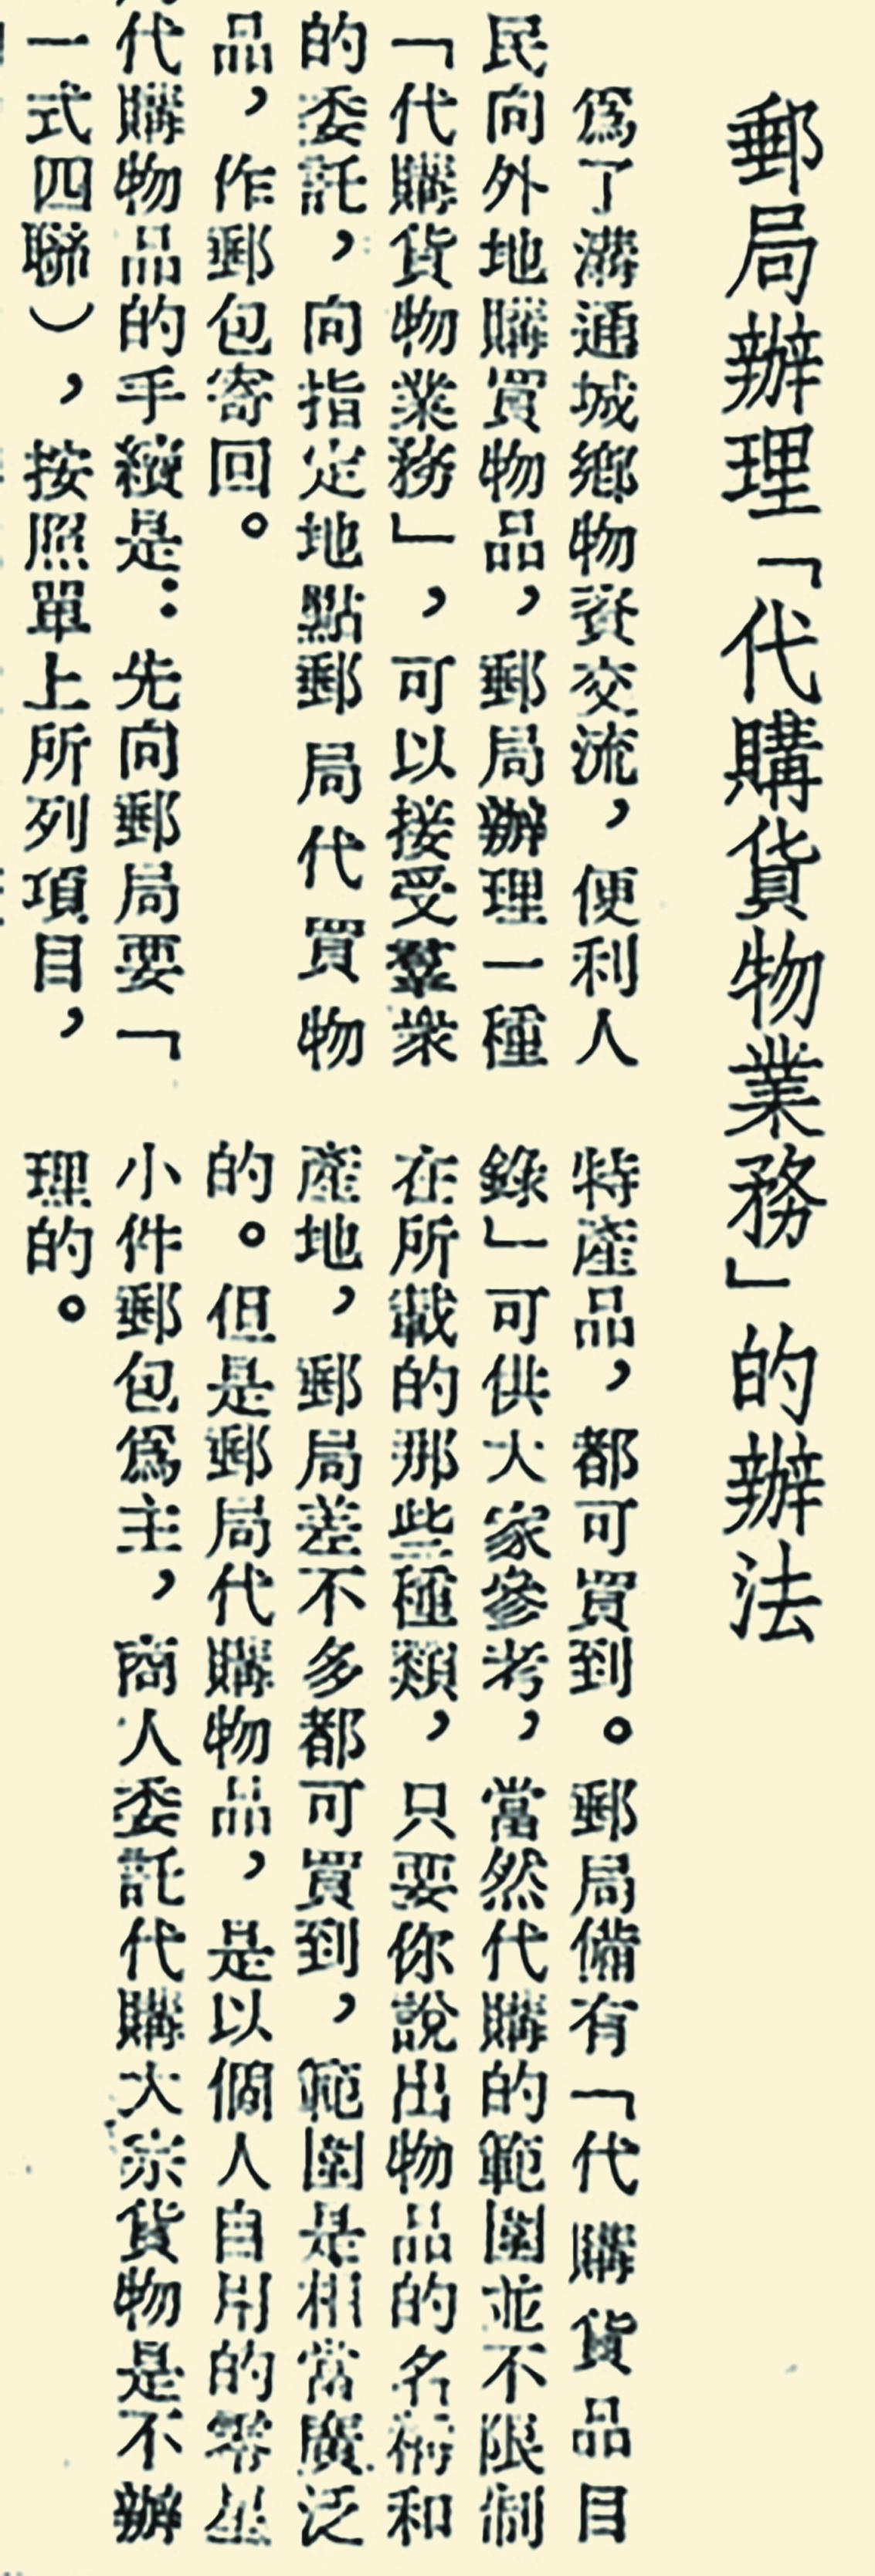 郵局辦理「代購貨物業務」的辦法
爲了溝通城鄉物資交流，便利人
民向外地購買物品，郵局辦理一種
「代購貨物業務」，可以接受羣衆
的委託，向指定地點郵局代買物
品，作郵包寄回。
代購物品的手續是：先向郵局要「
一式四聯），按照單上所列項目，
特產品，都可買到。郵局備有「代購貨品目
錄」可供大家參考，當然代購的範圍並不限制
在所載的那些種類，只要你說出物品的名稱和
產地，郵局差不多都可買到，範圍是相當廣泛
的。但是郵局代購物品，是以個人自用的零星
小件郵包爲主，商人委託代購大宗貨物是不辦
理的。